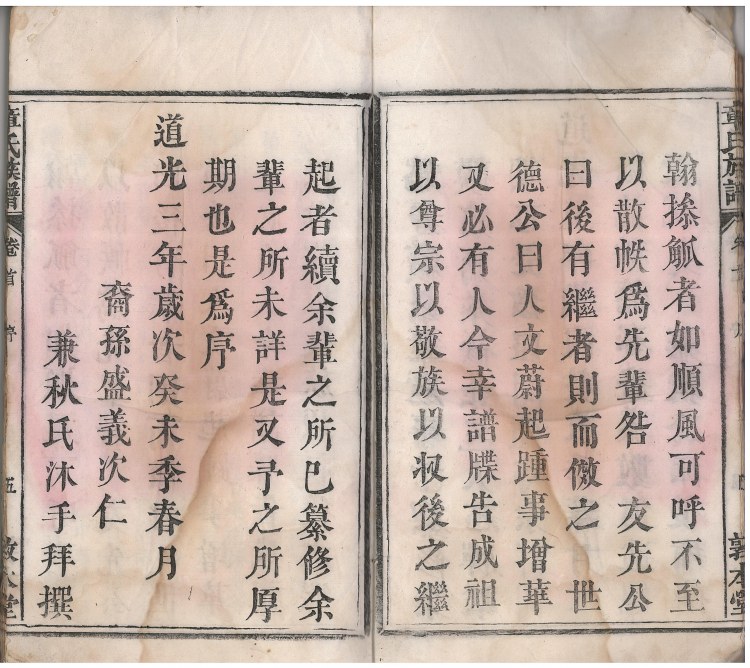 章氏族譜
敦本堂
翰摻觚者如順風可呼不至
以散帙爲先輩咎　友先公
曰後有繼者則而傚之　世
德公曰人文蔚起踵事增華
又必有人今幸譜牒告成祖
以尊宗以敬族以収後之繼
起者續余輩之所已纂修余
輩之所未詳是又予之所厚
期也是爲序
道光三年歲次癸未季春月
裔孫盛義次仁
兼秋氏沐手拜撰
章氏族譜 卷首 序 五 敦本堂